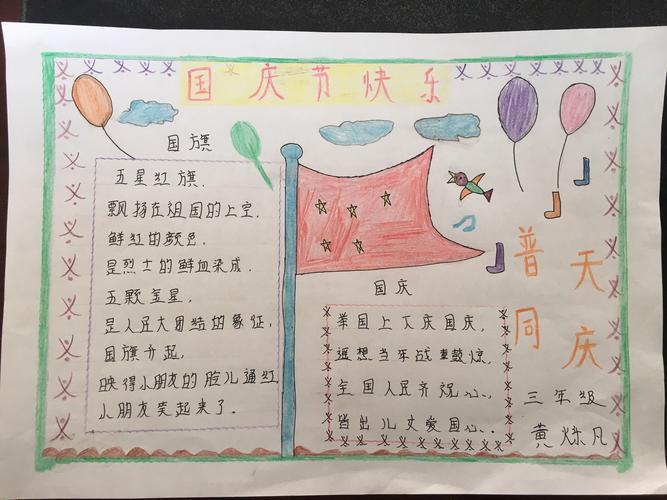 国庆节快乐
国旗
五星红旗.
飘扬在祖国的上空.
鲜红的颜色.
是烈士的鲜血染成.
五颗金星.
是人民大团结的象征,
国旗升起,
映得小朋友的脸儿通红
小朋友笑起来了.
国庆
举国上下庆国庆,
遥想当年战鼓惊.
全国人民齐祝心,
当出儿女爱国心.
普天
同庆
三年级
黄烁凡